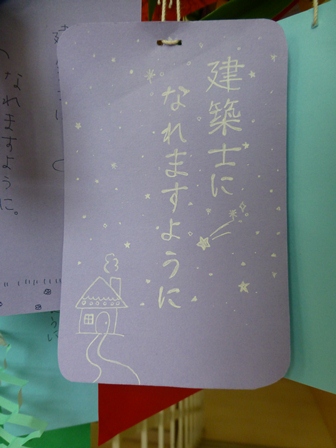 建築士に
なれますように
なれますように。